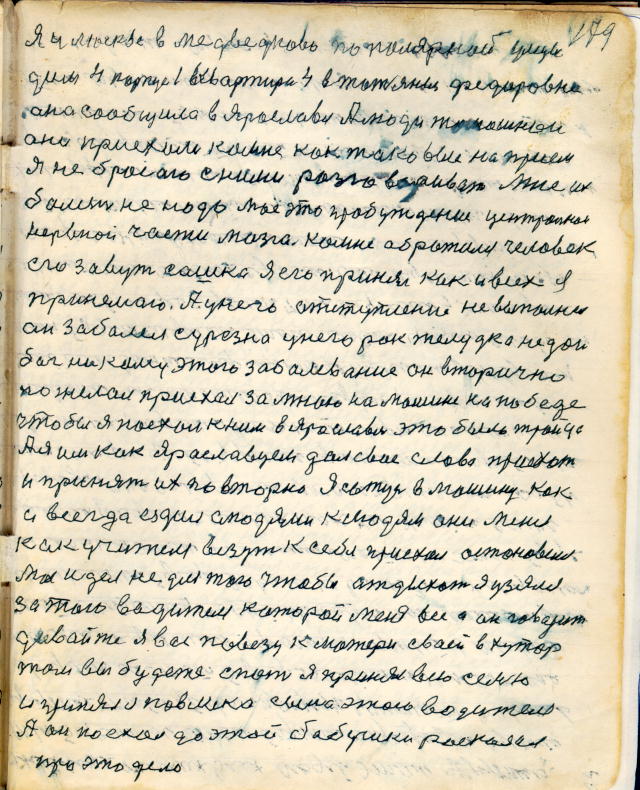 179
Я у Москве в медведково по полярной улице
дом 4 корпус 1 квартира 4 в тотяны федаровны
она сообщила в Ярославл А люди томошнеи
они приехали комне как таковые на прием
Я не бросаю сними разговаривать Мне их
болезн не надо Мое это пробуждение центролной
нервной части мозга. комне обротился человек
его завут сашка Я его принял как и всех Я
принемаю. А унего отступление невыполнил
он заболел сурезна унего рок желудка недай
бог никому этого заболевание он вторично
пожелал приехал замною на машине на победе
чтобы я поехал кним в Ярославл это было
А я им как Ярославцем дал свое слово приехат
и принят их повторно Я сел в машину как
и всегда ездил слюдями клюдям они меня
как учителя везут к себе приехал остоновил
Мы идел не для того чтобы атдыхат я узялся
за того водителя каторой меня вез а он говорит
давайте я вас повезу к матери сваей в хутор
том вы будете спат Я принял всю семю
и принял сына этого водителя
А он поехал до этой бабушки расказал
про это дело